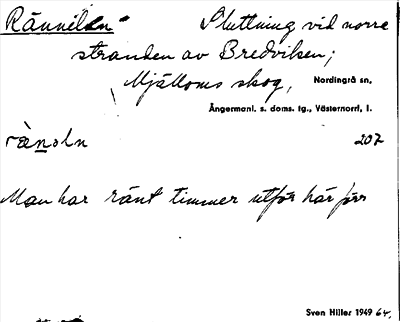 Rännilen Sluttning vid norra
stranden av Bredviken;
Mjälloms skog, Nordingrå sn,
Ångermanl. s. doms. tg., Västernorrl. l.
207
Man har ränt timmer utför här förr
Sven Hiller 1949 64.